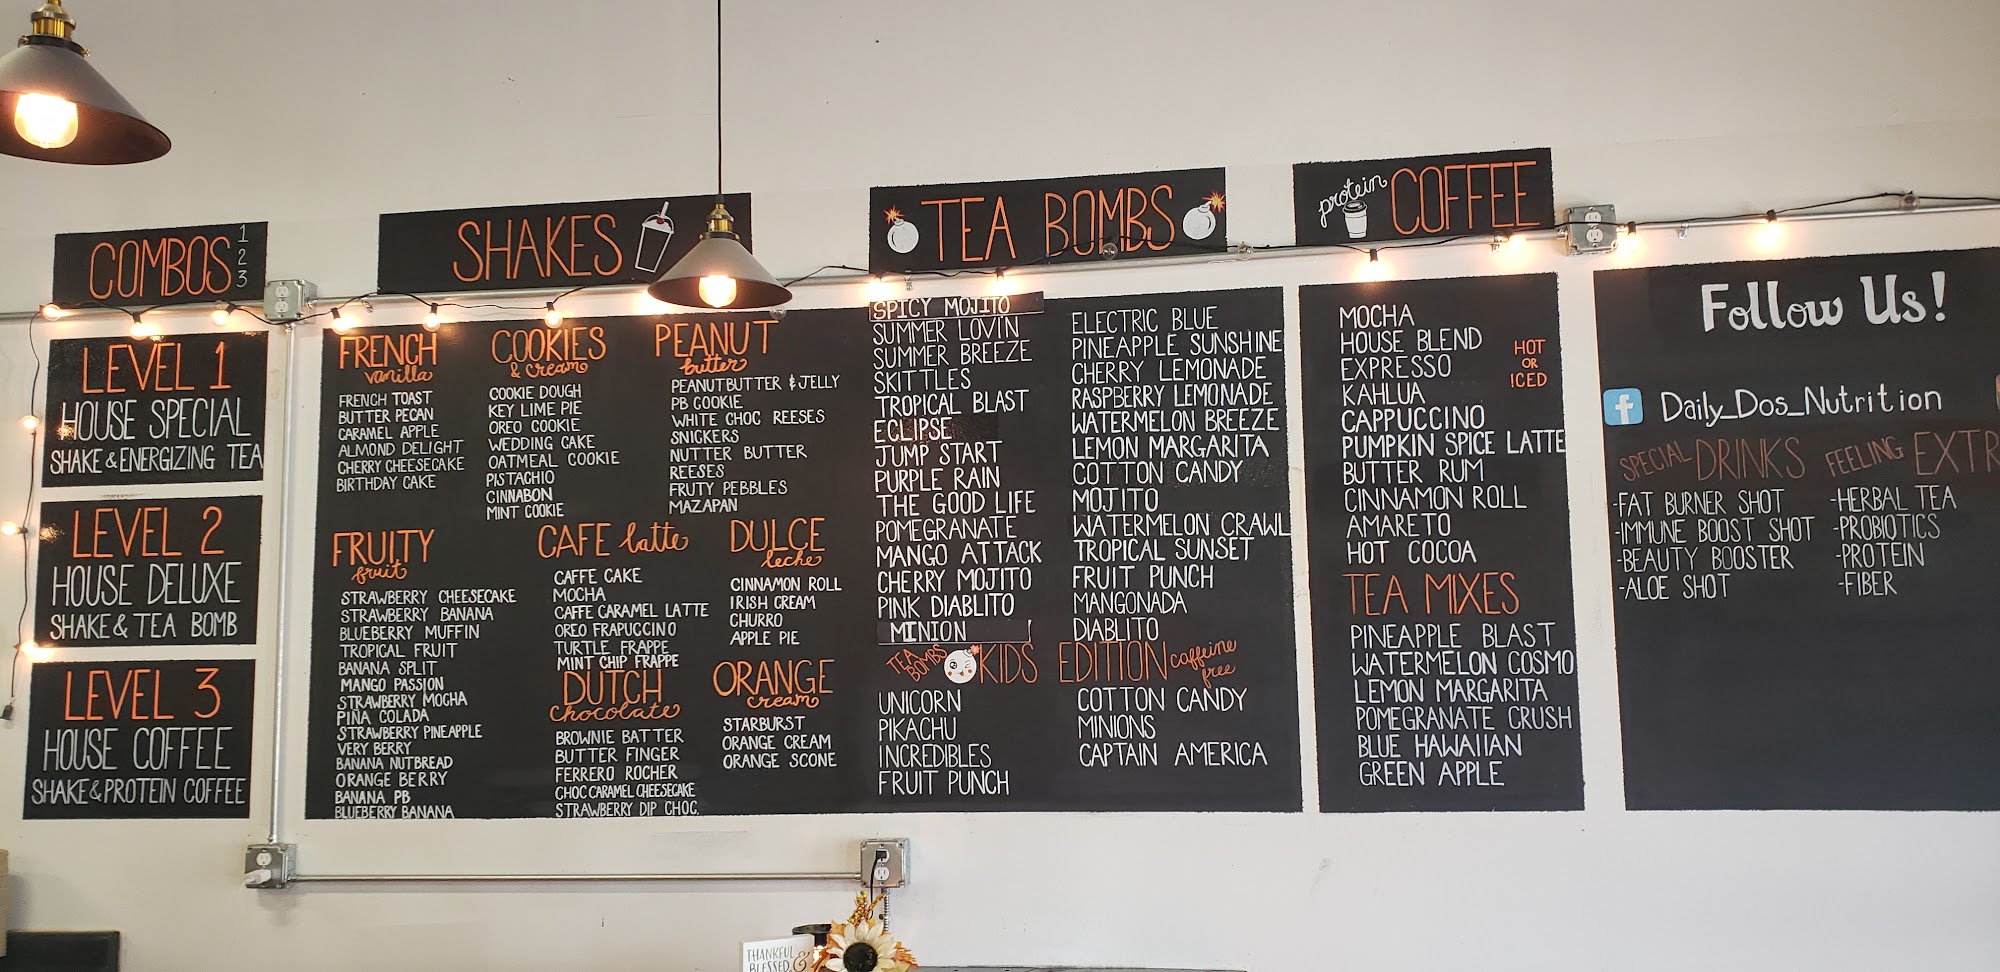 COMBOS 1 2 3
LEVEL 1
HOUSE SPECIAL
SHAKE & ENERGIZING TEA
LEVEL 2
HOUSE DELUXE
SHAKE & TEA BOMB
LEVEL 3
HOUSE COFFEE
SHAKE & PROTEIN COFFEE
SHAKES
FRENCH
vanilla
FRENCH TOAST
BUTTER PECAN
CARAMEL APPLE
ALMOND DELIGHT
CHERRY CHEESECAKE
BIRTHDAY CAKE
COOKIES
& cream
COOKIE DOUGH
KEY LIME PIE
OREO COOKIE
WEDDING CAKE
OATMEAL COOKIE
PISTACHIO
CINNABON
MINT COOKIE
PEANUT
butter
PEANUTBUTTER & JELLY
PB COOKIE
WHITE CHOC REESES
SNICKERS
NUTTER BUTTER
REESES
FRUTY PEBBLES
MAZAPAN
FRUITY
fruit
STRAWBERRY CHEESECAKE
STRAWBERRY BANANA
BLUEBERRY MUFFIN
TROPICAL FRUIT
BANANA SPLIT
MANGO PASSION
STRAWBERRY MOCHA
PIÑA COLADA
STRAWBERRY PINEAPPLE
VERY BERRY
BANANA NUTBREAD
ORANGE BERRY
BANANA PB
BLUEBERRY BANANA
CAFE latte
CAFFE CAKE
MOCHA
CAFFE CARAMEL LATTE
OREO FRAPUCCINO
TURTLE FRAPPE
MINT CHIP FRAPPE
DUTCH
chocolate
BROWNIE BATTER
BUTTER FINGER
FERRERO ROCHER
CHOC CARAMEL CHEESECAKE
STRAWBERRY DIP CHOC.
DULCE
leche
CINNAMON ROLL
IRISH CREAM
CHURRO
APPLE PIE
ORANGE
cream
STARBURST
ORANGE CREAM
ORANGE SCONE
TEA BOMBS
SPICY MOJITO
SUMMER LOVIN
SUMMER BREEZE
SKITTLES
TROPICAL BLAST
ECLIPSE
JUMP START
PURPLE RAIN
THE GOOD LIFE
POMEGRANATE
MANGO ATTACK
CHERRY MOJITO
PINK DIABLITO
MINION
ELECTRIC BLUE
PINEAPPLE SUNSHINE
CHERRY LEMONADE
RASPBERRY LEMONADE
WATERMELON BREEZE
LEMON MARGARITA
COTTON CANDY
MOJITO
WATERMELON CRAWL
TROPICAL SUNSET
FRUIT PUNCH
MANGONADA
DIABLITO
TEA BOMBS KIDS EDITION caffeine free
UNICORN
PIKACHU
INCREDIBLES
FRUIT PUNCH
COTTON CANDY
MINIONS
CAPTAIN AMERICA
protein COFFEE
MOCHA
HOUSE BLEND
EXPRESSO
KAHLUA
CAPPUCCINO
PUMPKIN SPICE LATTE
BUTTER RUM
CINNAMON ROLL
AMARETO
HOT COCOA
HOT
OR
ICED
TEA MIXES
PINEAPPLE BLAST
WATERMELON COSMO
LEMON MARGARITA
POMEGRANATE CRUSH
BLUE HAWAIIAN
GREEN APPLE
Follow Us!
f Daily_Dos_Nutrition
SPECIAL DRINKS
-FAT BURNER SHOT
-IMMUNE BOOST SHOT
-BEAUTY BOOSTER
-ALOE SHOT
FEELING EXTR
-HERBAL TEA
-PROBIOTICS
-PROTEIN
-FIBER
THANKFUL
BLESSED &